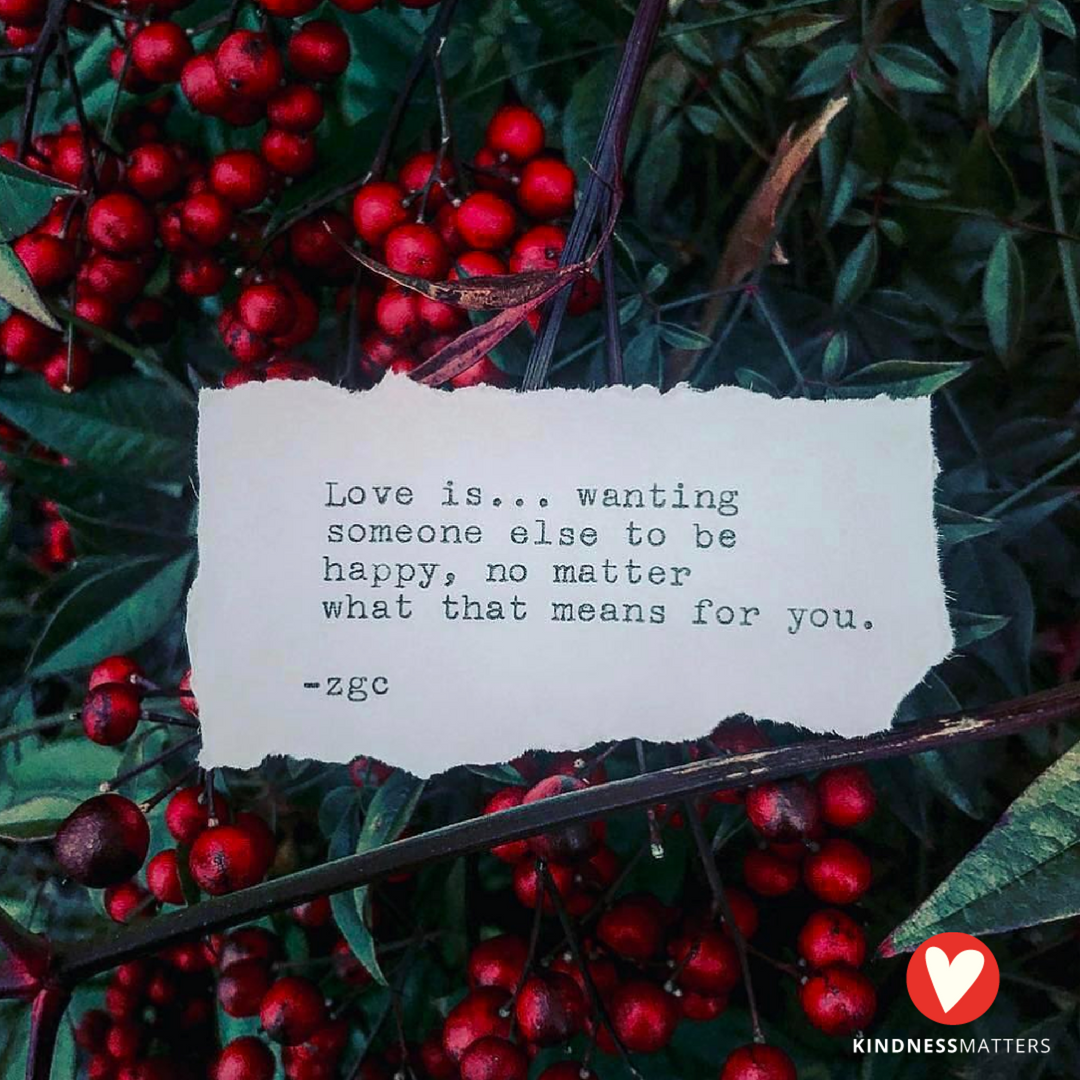 Love is... wanting
someone else to be
happy, no matter
what that means for you.
-zgc
KINDNESSMATTERS